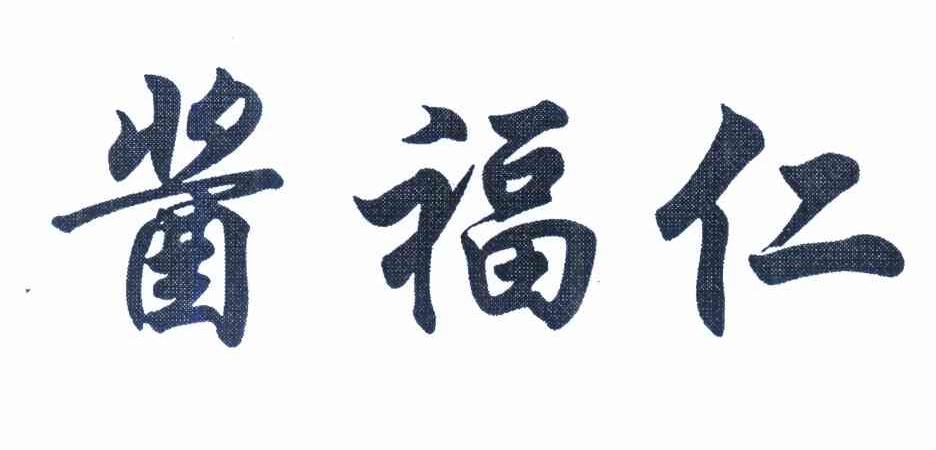 酱福仁